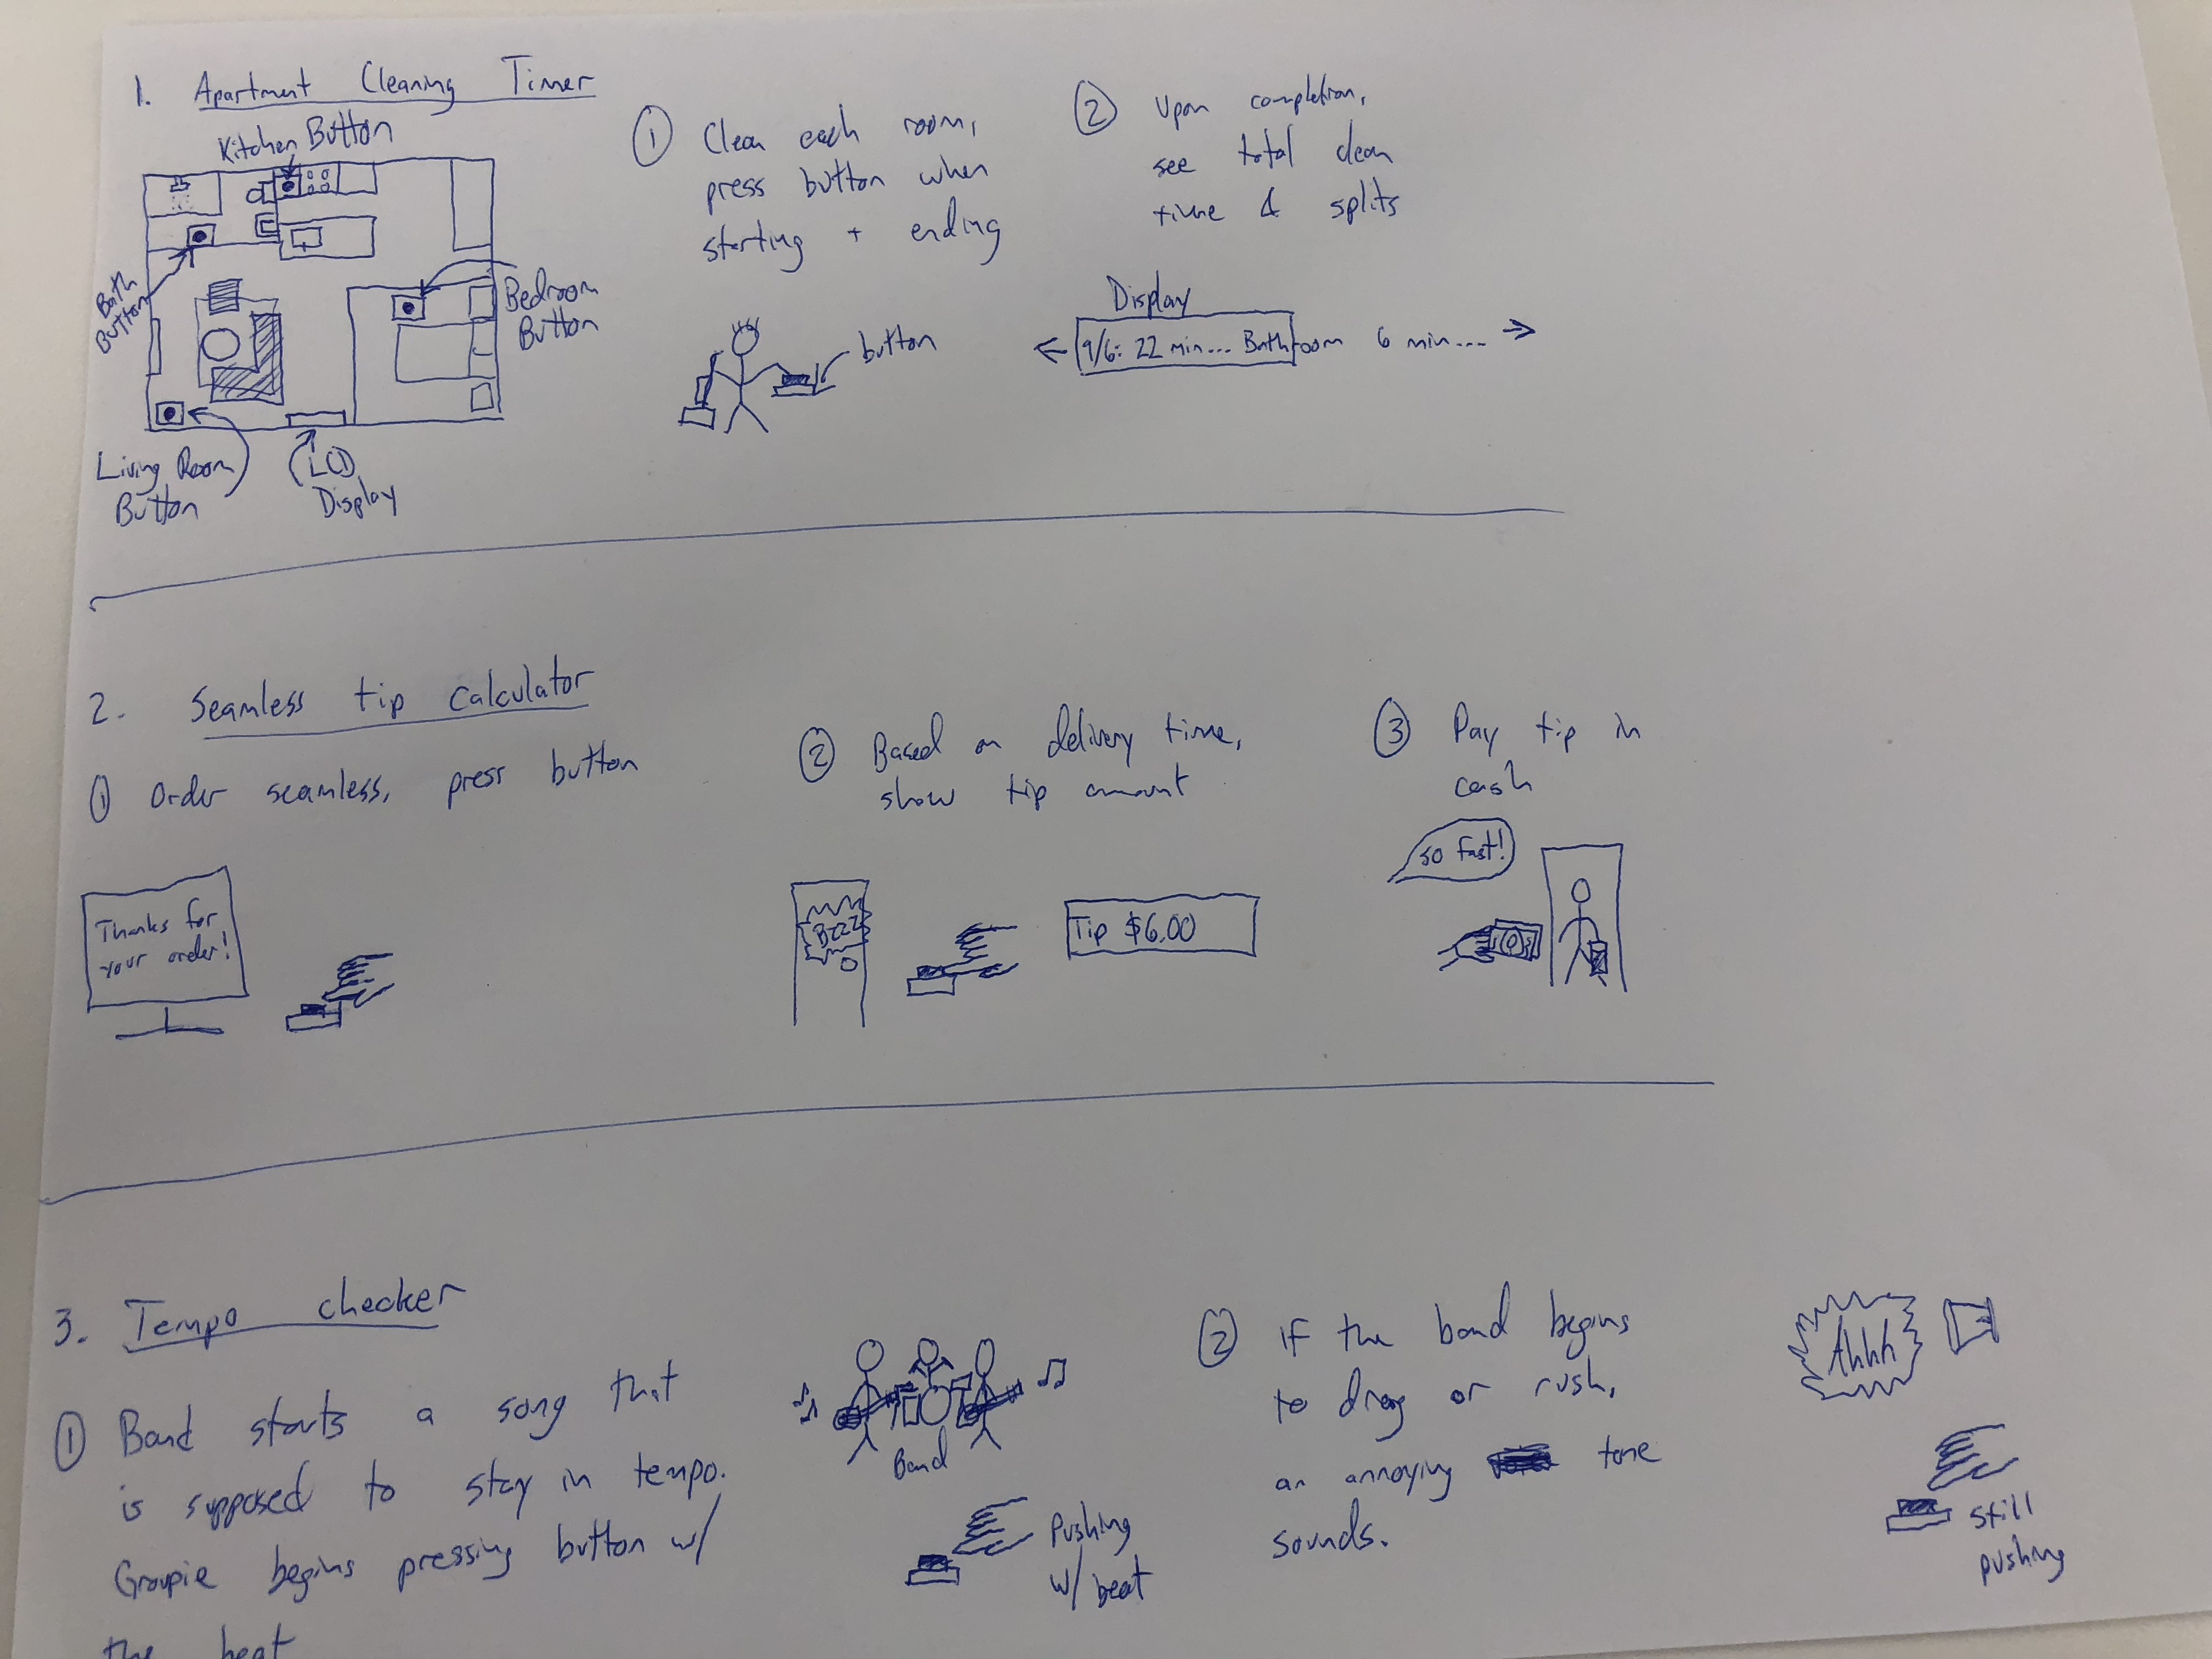 1. Apartment Cleaning Timer
Kitchen Button
Bath
Button
Living Room
Button
LCD
Display
Bedroom
Button
① Clean each room,
press button when
starting + ending
button
② Upon completion,
see total clean
time & splits
Display
9/6: 22 min... Bathroom 6 min...
2. Seamless tip calculator
① Order seamless, press button
Thanks for
your order!
② Based on delivery time,
show tip amount
Bzzz
Tip $6.00
③ Pay tip in
cash
so fast!
3. Tempo checker
① Band starts a song that
is supposed to stay in tempo.
Groupie begins pressing button w/
the beat
Band
Pushing
w/ beat
② If the band begins
to drag or rush,
an annoying tone
sounds.
Ahhh
still
pushing